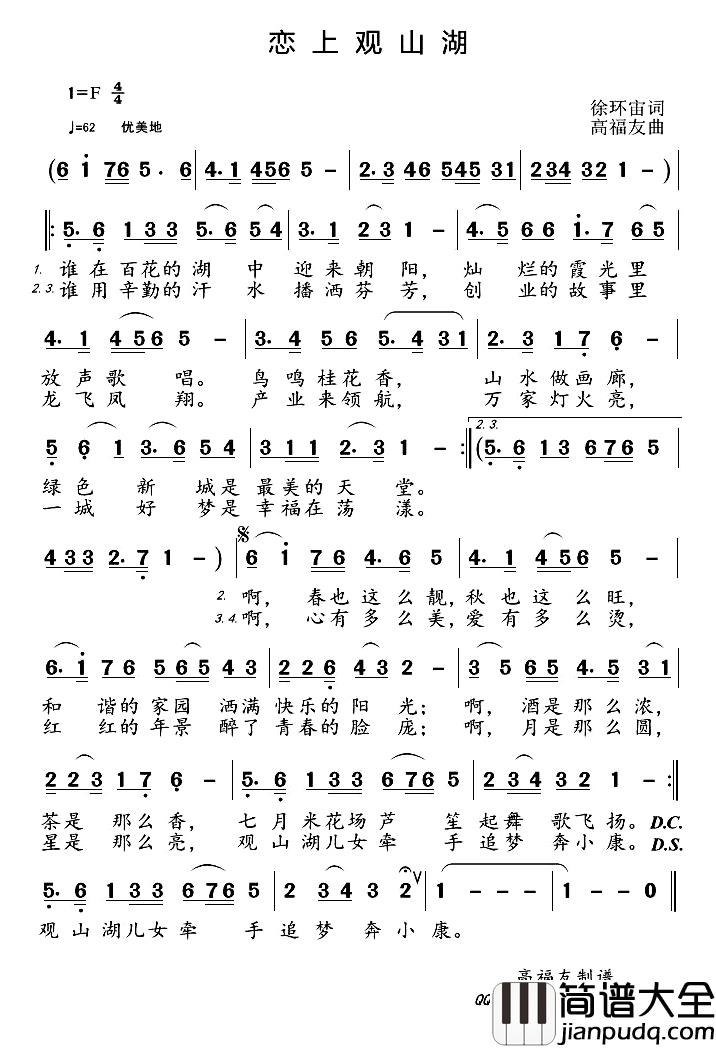 恋上观山湖
1=F 4/4
徐环宙词
♩=62 优美地
高福友曲
(6 1 76 5. 6 | 4.1 456 5 - | 2.3 46 545 31 | 234 32 1 - )
‖: 5.6 133 5.6 54 | 3.1 231 - | 4.5 66 1.7 65
1. 谁在百花的湖 中 迎来朝阳， 灿 烂的霞光里
2.3. 谁用辛勤的汗 水 播洒芬芳， 创 业的故事里
4.1 456 5 - | 3.4 36 5.4 31 | 2.3 17 6 -
放声歌 唱。 鸟鸣桂花香， 山水做画廊，
龙飞凤 翔。 产业来领航， 万家灯火亮，
5 6 1 3.6 54 | 311 2.3 1 - :‖ 2.3. (5.6 13 676 5
绿色 新 城是 最美的天 堂。
一城 好 梦是 幸福在荡 漾。
433 2.7 1 - ) | 6 1 76 4.6 5 | 4.1 456 5 -
2. 啊， 春也这么靓，秋也这 么旺，
3.4. 啊， 心有多么美，爱有多 么烫，
6.1 76 565 43 | 226 43 2 - | 3 565 4.5 31
和 谐的家园 洒满 快乐的阳 光； 啊， 酒是那么浓，
红 红的年景 醉了 青春的脸 庞； 啊， 月是那么圆，
223 17 6 - | 5.6 133 676 5 | 2 234 32 1 - :‖
茶是 那么香， 七月米花场芦 笙 起舞 歌飞扬。D.C.
星是 那么亮， 观山湖儿女牵 手 追梦 奔小康。D.S.
5.6 133 676 5 | 2 34 3 2 ∨ | 1 - - - | 1 - - 0 ‖
观山湖儿女牵 手追梦 奔小康。
高福友制谱
QQ
简谱大全
jianpudq.com